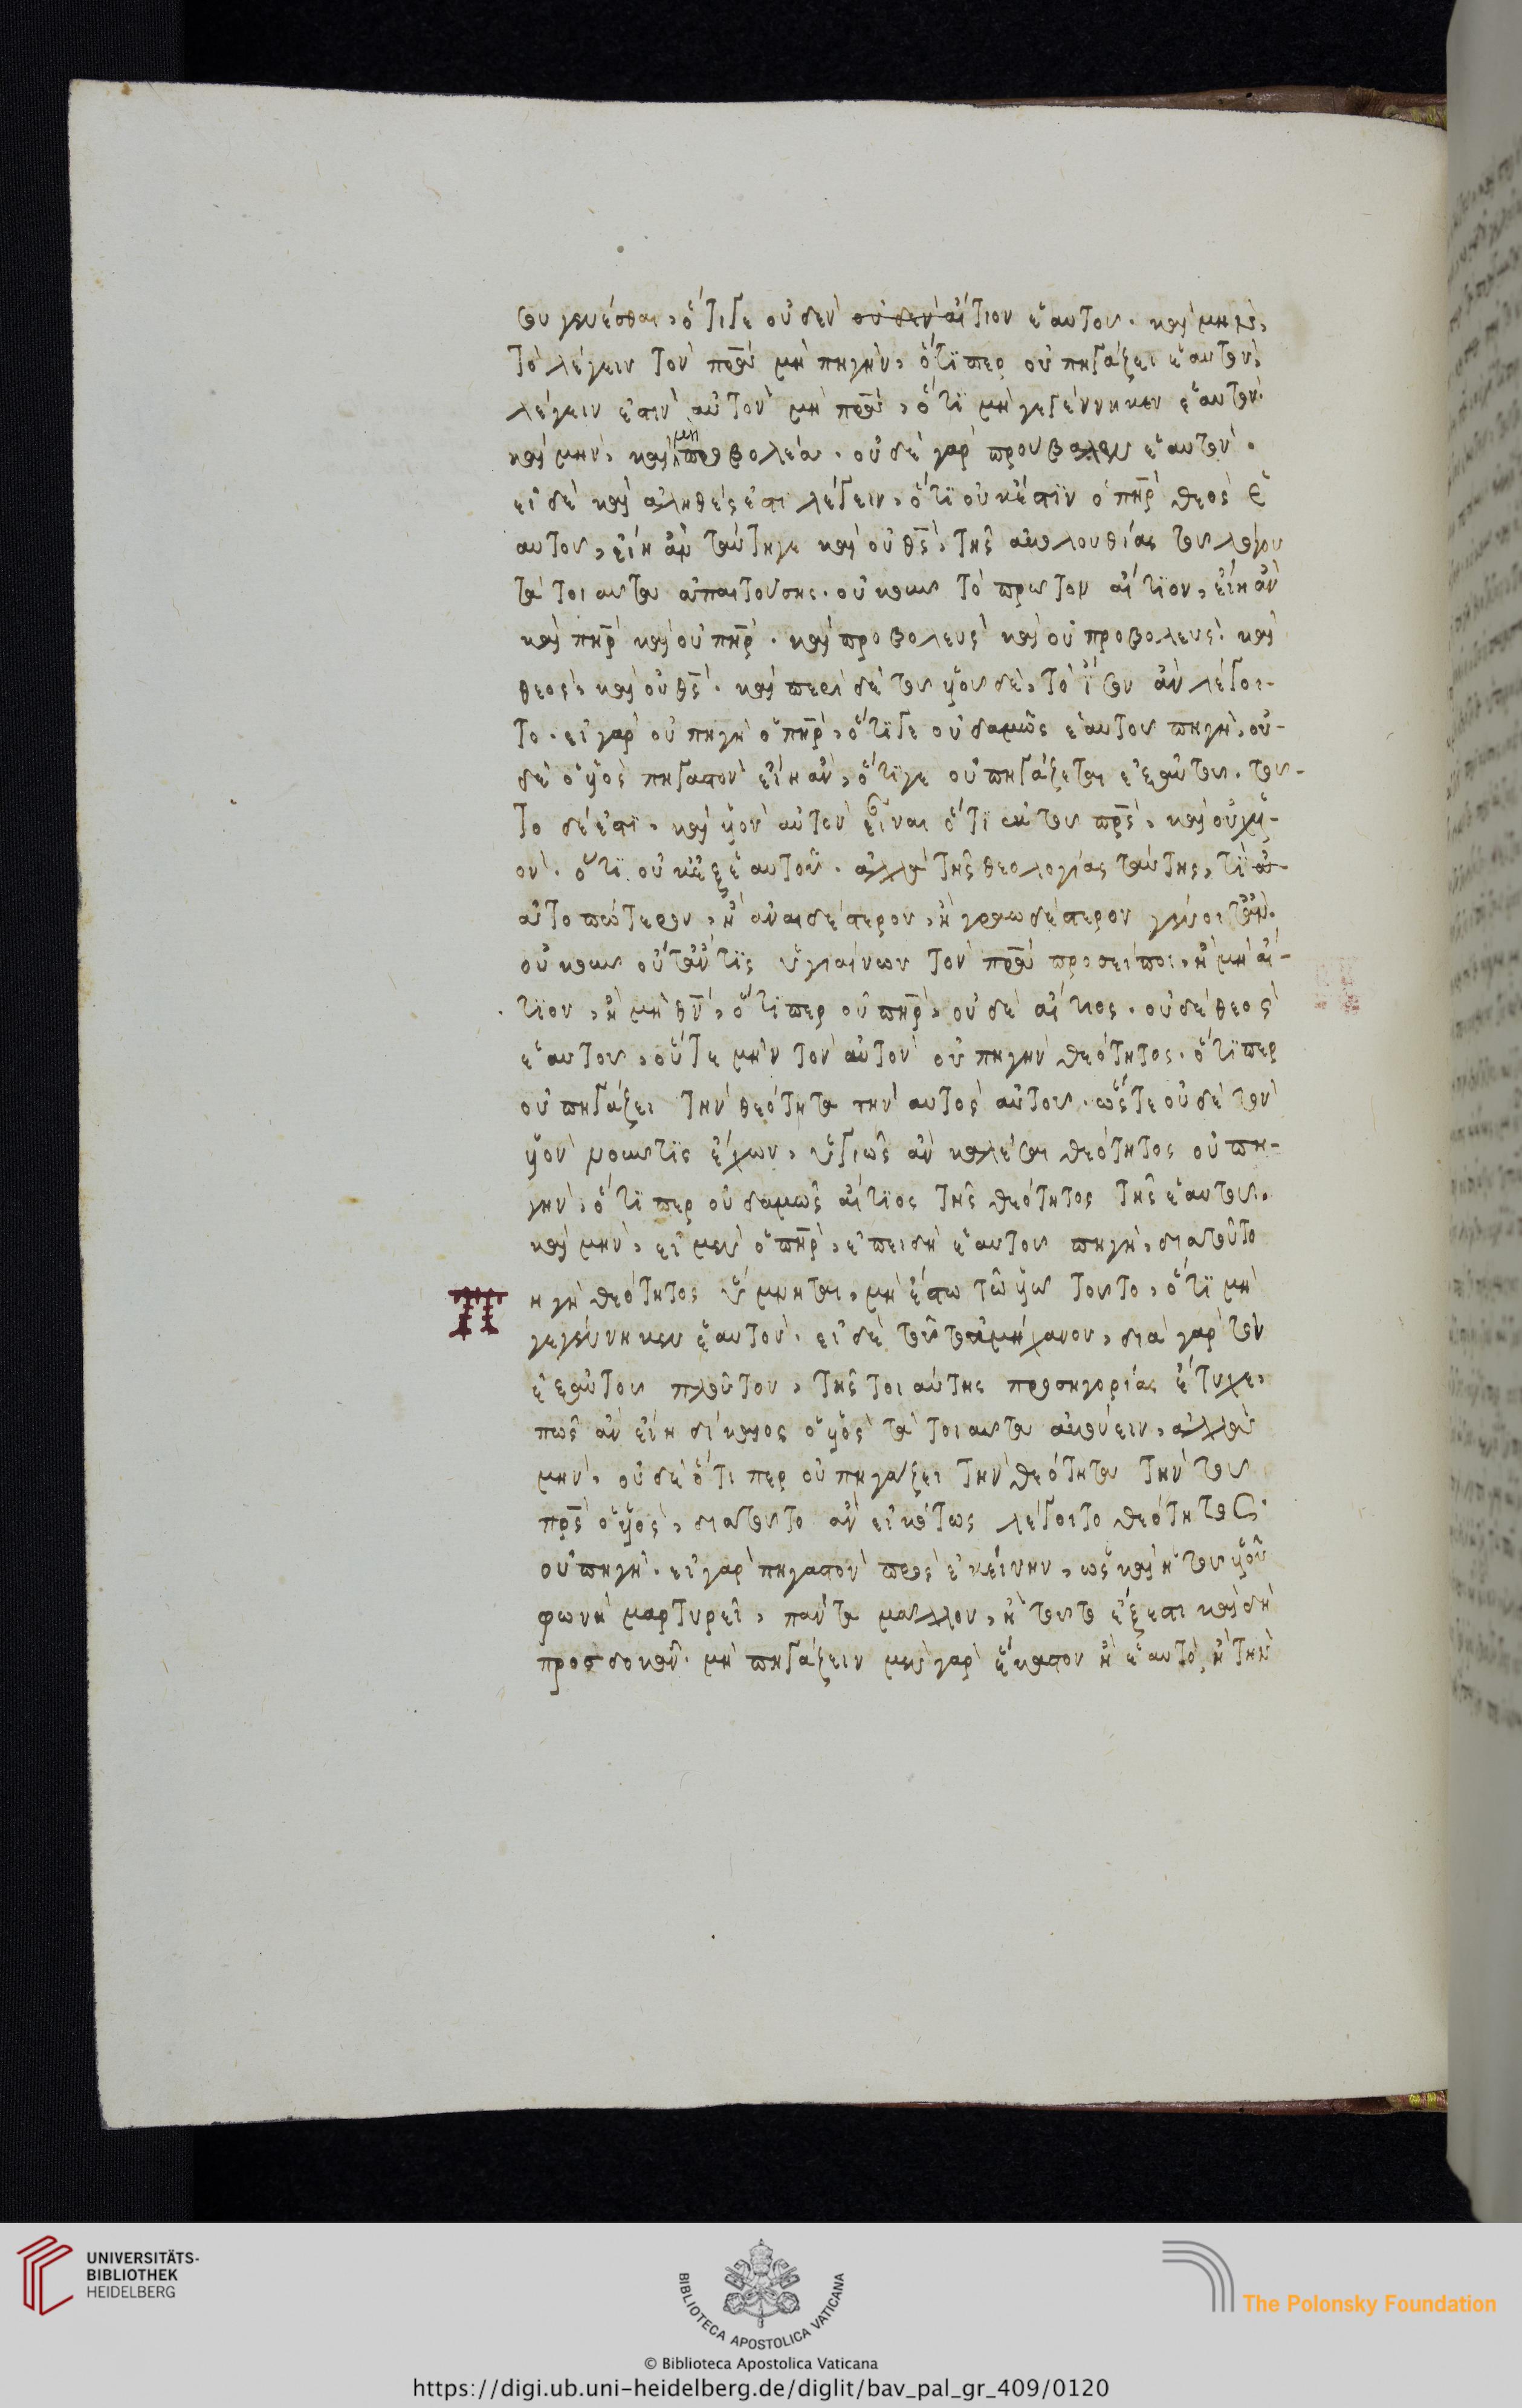 του γενέσθαι, ὅτιγε οὐδὲν οὐδὲν αἴτιον ἑαυτου. καὶ μην
τὸ λέγειν τὸν πρα̅ μὴ πηγὴν, ὅτϊπερ οὐ πηγάζει ἑαυτὸν,
λέγειν ἐστὶν αὐτὸν μὴ πρα̅, ὅτϊ μὴ γεγέννηκεν ἑαυτὸν.
καὶ μὴν, καὶ μὴ προβολέα. οὐδὲ γὰρ προυβαλεν ἑαυτὸν.
εἰ δὲ καὶ ἀληθές ἐστι λέγειν, ὅτϊ οὐκέστϊν ὁ πηρ̅ θεὸς ἑ
αυτου, εἴη ἂν ταύτηγε καὶ οὐ θς̅, τῆς ἀκολουθίας του λόγου
τὰ τοιαυτα ἀπαιτούσης. οὐκουν τὸ πρωτον αἴτϊον, εἴη ἂν
καὶ πηρ̅ καὶ οὐ πηρ̅. καὶ προβολευς καὶ οὐ προβολευς. καὶ
θεος, καὶ οὐ θς̅. καὶ περὶ δὲ του υἱου δὲ, τὸ ἴσον ἂν λέγοι-
το. εἰ γὰρ οὐ πηγὴ ὁ πηρ̅, ὅτϊγε οὐδαμῶς ἑαυτου πηγὴ, οὐ-
δὲ ὁ υἱὸς πηγαστὸν εἴη ἂν, ὅτϊγε οὐ πηγάζεται ἐξαὑτου. του-
το δέ ἐστϊ, καὶ υἱὸν αὐτὸν εἶναι ὅτϊ ἐκ του πρς̅, καὶ οὐχ υἱ-
ὸν. ὅτϊ οὐκ ἐξ ἑαυτοῦ. ἀλλὰ τῆς θεολογίας ταύτης, τϊ ἀ-
ἀτοπώτερον, ἢ ἀναιδέστερον, ἢ γραωδέστερον γένοιτἂν.
οὐκουν οὔτἄν τϊς ὑγιαίνων τὸν πρα̅ προσείποι, ἢ μὴ αἴ-
τϊον, ἢ μὴ θν̅, ὅτϊπερ οὐ πηρ̅, οὐδὲ αἴτιος. οὐδὲ θεὸς
ἑαυτου, οὔτε μὴν τὸν αὐτὸν οὐ πηγὴν θεότητος. ὅτϊπερ
οὐ πηγάζει τὴν θεότητα τὴν αυτὸς αὑτου. ὥστε οὐδὲ τὸν
υἱὸν νουντϊς ἔχων, ὑγιῶς ἂν καλέσαι θεότητος οὐ πη-
γὴν, ὅτϊπερ οὐδαμῶς αἴτϊος τῆς θεότητος τῆς ἑαυτου.
καὶ μὴν, εἰ μὲν ὁ πηρ̅, ἐπειδὴ ἑαυτου πηγὴ, διατοῦτο
πηγὴ θεότητος ὕμνηται, μὴ ἔστω τῶ υἱῶ τουτο, ὅτϊ μὴ
γεγέννηκεν ἑαυτὸν. εἰ δὲ τοῦτ' ἀμήχανον, διὰ γὰρ τὸν
ἐξαὑτου πλοῦτον, τῆς τοιαύτης προσηγορίας ἔτυχε,
πῶς ἂν εἴη δίκαιος ὁ υἱὸς τὰ τοιαυτα ἀκούειν, ἀλλὰ
μὴν, οὐδὲ ὅτι περ οὐ πηγάζει τὴν θεότητα τὴν του
πρς̅ ὁ υἱὸς, διατουτο ἂν εἰκότως λέγοιτο θεότητος
οὐ πηγὴ. εἰ γὰρ πηγαστὸν πρὸς ἐκείνην, ὡς καὶ ἡ του υἱοῦ
φωνὴ μαρτυρεῖ, πάντα μαλλον, ἢ τουτο ἔξεστι καὶ δὴ
προσδοκᾶν. μὴ πηγάζειν μὲν γὰρ ἕκαστον ἢ ἑαυτὸ, ἢ τὴν
UNIVERSITÄTS-
BIBLIOTHEK
HEIDELBERG
BIBLIOTECA APOSTOLICA VATICANA
The Polonsky Foundation
© Biblioteca Apostolica Vaticana
https://digi.ub.uni-heidelberg.de/diglit/bav_pal_gr_409/0120